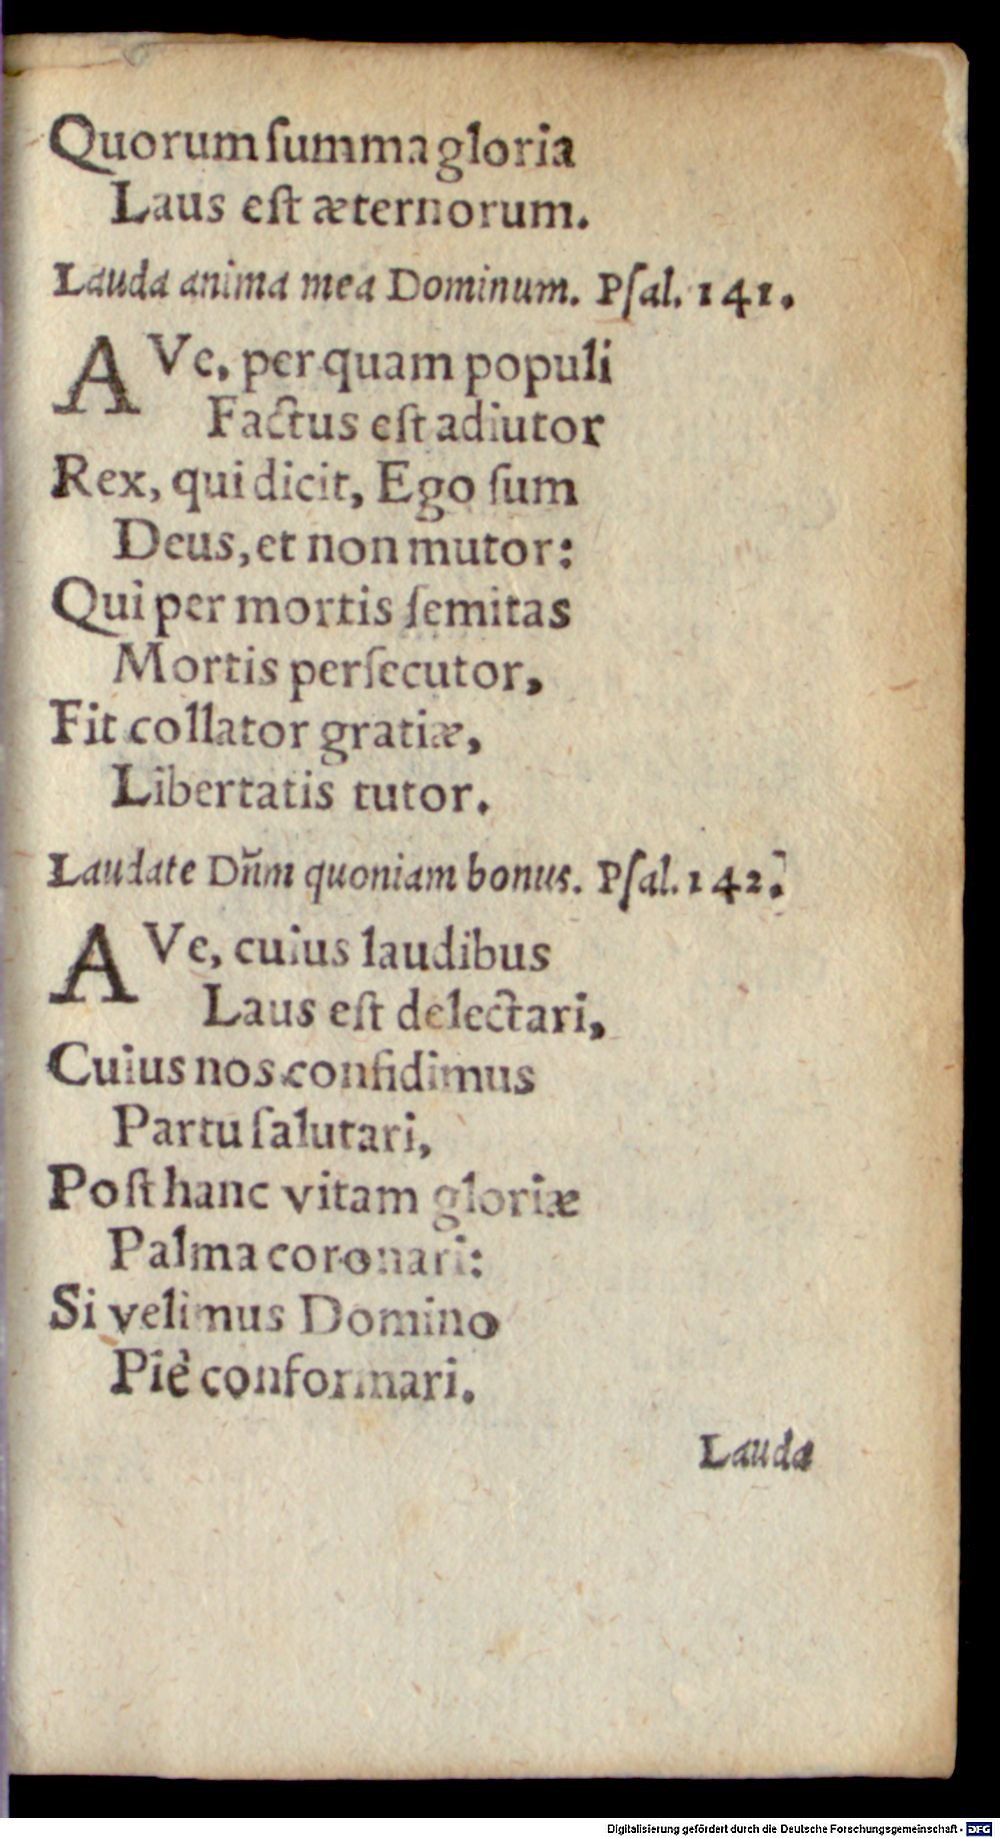 Quorum ſumma gloria
Laus eſt æternorum.
Lauda anima mea Dominum. Pſal. 141.
AVe, per quam populi
Factus eſt adiutor
Rex, qui dicit, Ego ſum
Deus, et non mutor:
Qui per mortis ſemitas
Mortis perſecutor,
Fit collator gratiæ,
Libertatis tutor.
Laudate Dn̄m quoniam bonus. Pſal. 142.
AVe, cuius laudibus
Laus eſt delectari,
Cuius nos confidimus
Partu ſalutari,
Poſt hanc vitam gloriæ
Palma coronari:
Si velimus Domino
Piè conformari.
Lauda
Digitalisierung gefördert durch die Deutsche Forschungsgemeinschaft - DFG